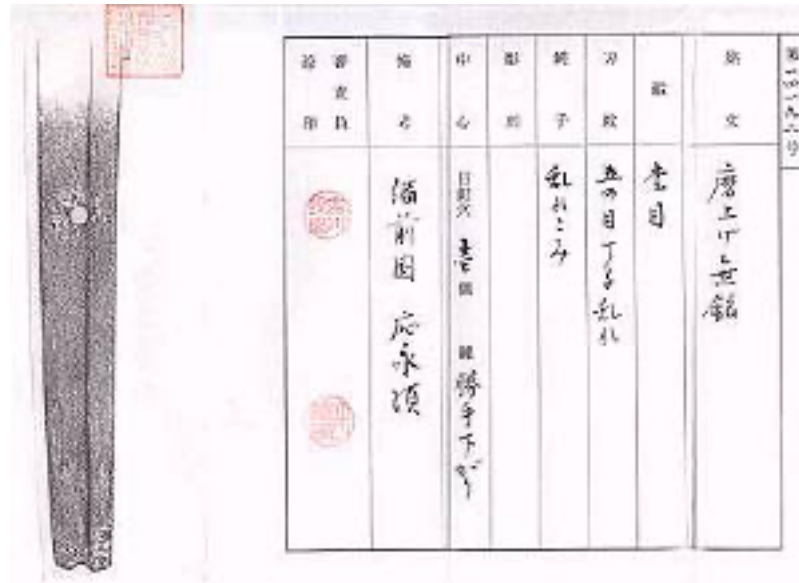 銘文 磨上げ無銘
鍛 杢目
刃紋 五の目丁子乱れ
鋩子 乱れこみ
彫刻
中心 目釘穴 壱個 鑢 勝手下がり
備考 備前国 応永頃
審査員
証印